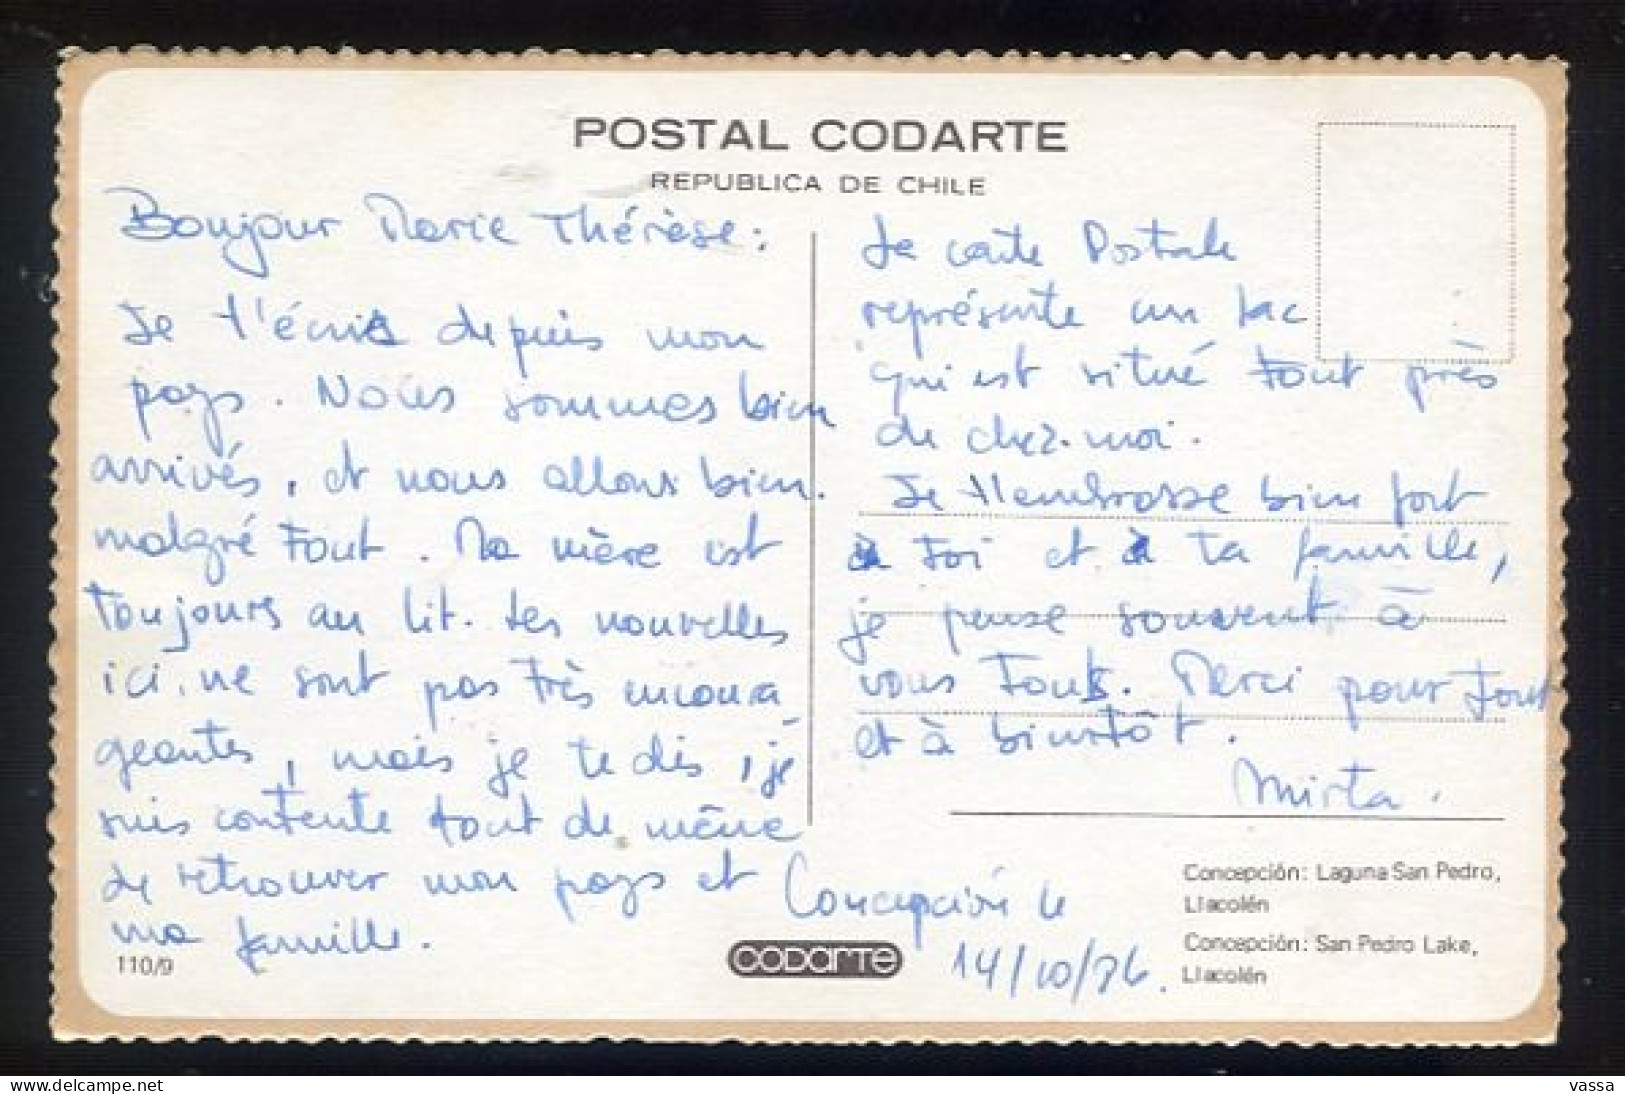 POSTAL CODARTE
REPUBLICA DE CHILE
Bonjour Marie Thérèse :
Je t'écris depuis mon
pays. Nous sommes bien
arrivés, et nous allons bien.
malgré tout. Ma mère est
toujours au lit. Les nouvelles
ici, ne sont pas très encoura
geantes, mais je te dis, je
suis contente tout de même
de retrouver mon pays et
ma famille.
110/9
La carte Postale
représente un lac
qui est situé tout près
de chez-moi.
Je t'embrasse bien fort
à toi et à ta famille,
je pense souvent à
vous tous. Merci pour tout
et à bientôt.
Mirta.
Concepción le
14/10/86.
CODARTE
Concepción: Laguna San Pedro,
Llacolén
Concepción: San Pedro Lake,
Llacolén
Delcampe.net
vassa